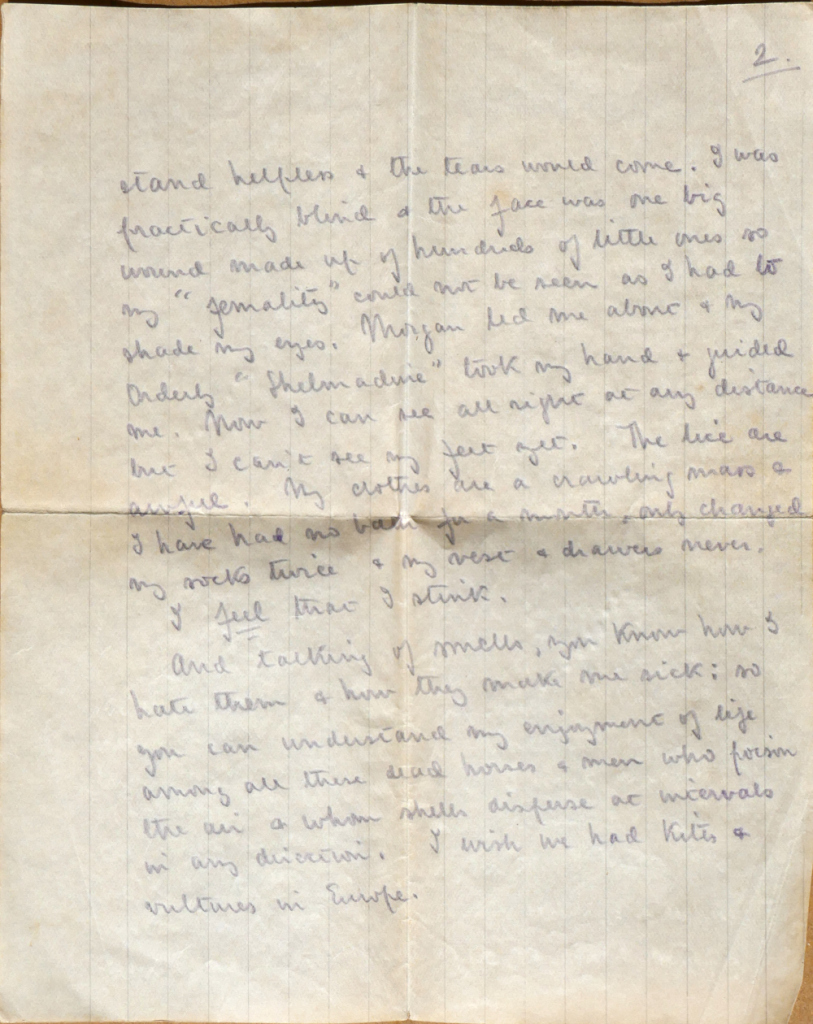 2.
stand helpless & the tears would come. I was
practically blind & the face was one big
wound made up of hundreds of little ones so
my "gemality" could not be seen as I had to
shade my eyes. Morgan led me about & my
Orderly "Shelmadine" took my hand & guided
me. Now I can see all right at any distance
but I can't see my feet yet. The lice are
awful. My clothes are a crawling mass &
I have had no bath for a month, only changed
my socks twice & my vest & drawers never.
I feel that I stink.
And talking of smells, you know how I
hate them & how they make me sick: so
you can understand my enjoyment of life
among all these dead horses & men who poison
the air & whom shells disperse at intervals
in any direction. I wish we had Kites &
vultures in Europe.